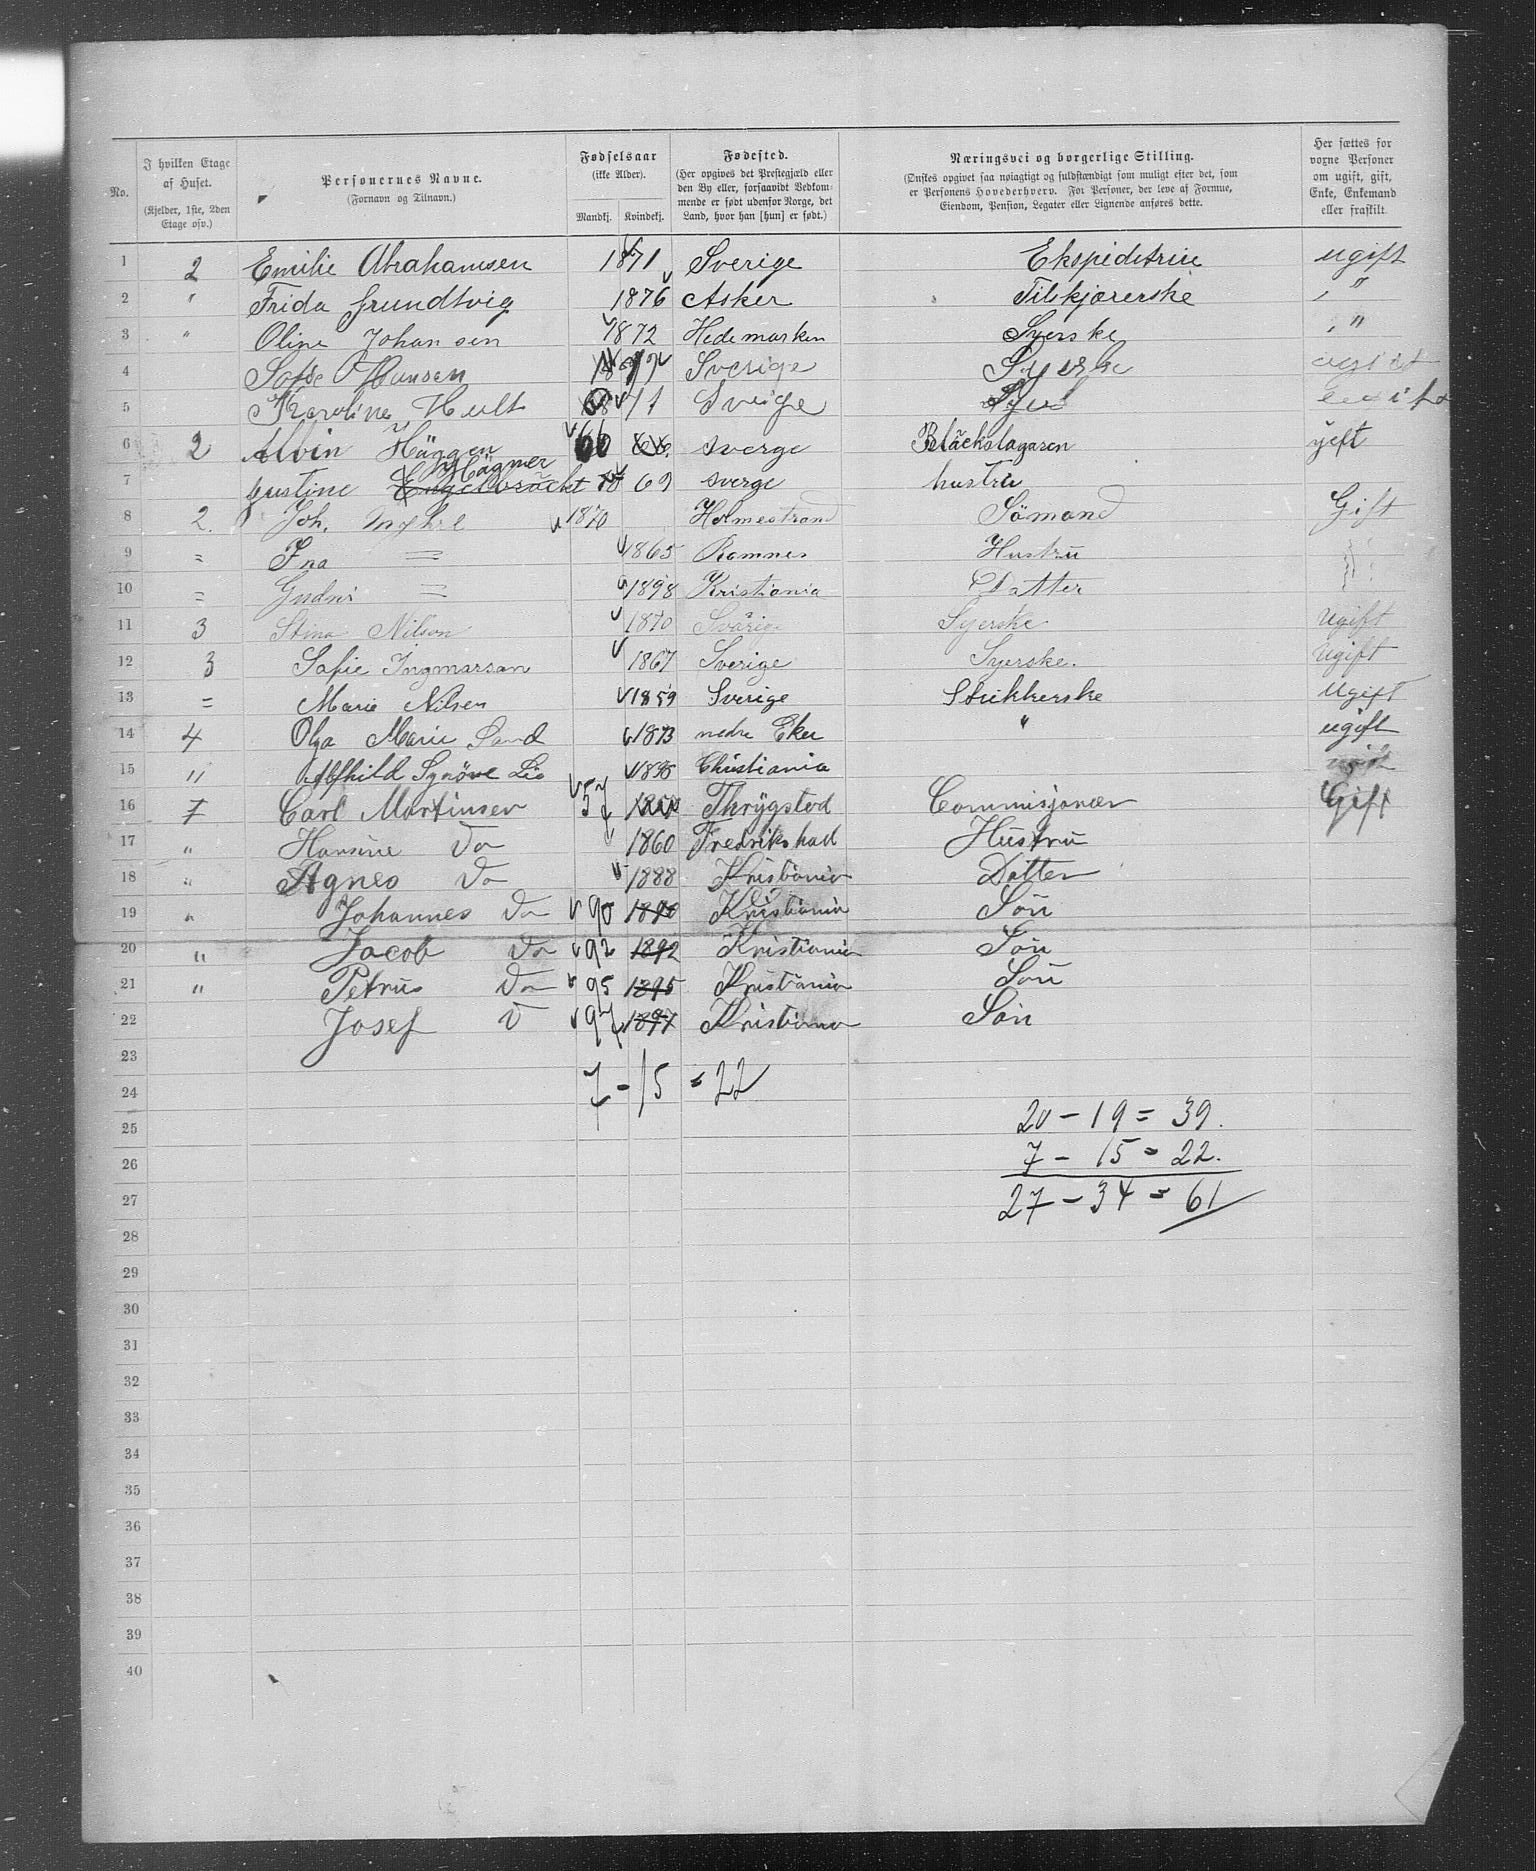 No.
I hvilken Etage af Huset. (Kjelder, 1ste, 2den Etage osv.)
Personernes Navne. (Fornavn og Tilnavn.)
Fødselsaar (ikke Alder). Mandkj. Kvindekj.
Fødested. (Her opgives det Prestegjæld eller den By eller, forsaavidt Vedkommende er født udenfor Norge, det Land, hvor han [hun] er født.)
Næringsvei og borgerlige Stilling. (Ønskes opgivet saa nøiagtigt og fuldstændigt som muligt efter det, som er Personens Hovederhverv. For Personer, der leve af Formue, Eiendom, Pension, Legater eller Lignende anføres dette.
Her sættes for voxne Personer om ugift, gift, Enke, Enkemand eller fraskilt.
1 2 Emilie Abrahamsen 1871 Sverige Ekspiditrise ugift
2 " Frida Grundtvig 1876 Asker Tilskjærerske , "
3 " Oline Johansen 1872 Hedemarken Syerske , "
4 Sofie Hansen Sverige Syerske
5 Karoline Hult 71 Sveige
6 2 Albin Häggen 66 sverge Bläckslagaren gift
7 Justine Engelbräckt Hägner 18 69 sverge hustru
8 2. Joh. Myhre 1870 Holmestrand Sömand Gift
9 = Ina = 1865 Ramnes Hustru
10 = Gudni = 1898 Kristiania Datter
11 3 Stina Nilson 1870 Svärige Syerske Ugift
12 3 Sofie Ingmarsan 1867 Sverige Syerske. Ugift
13 = Marie Nilsen 1859 Sverige Strikkerske Ugift
14 4 Olga Marie Sand 1873 nedre Eker " ugift
15 " Alfhild Synöve Lie 1898 Christiania
16 7 Carl Martinsen 57 Thrygstod Commisjonær Gift
17 " Hansine Do 1860 Fredrikshad Hustru
18 " Agnes Do 1888 Kristiania Datter
19 " Johannes Do 90 1890 Kristiania Sön
20 " Jacob Do 92 1892 Kristiania Sön
21 " Petrus Do 95 1895 Kristiania Sön
22 Josef D 97 1897 Kristiania Sön
23
24 7 - 15 = 22
25 20 - 19 = 39.
26 7 - 15 = 22.
27 27 - 34 = 61
28
29
30
31
32
33
34
35
36
37
38
39
40